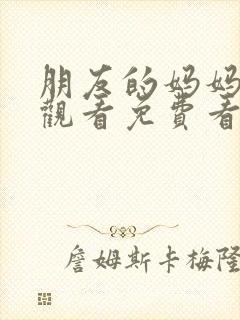 朋友的妈妈
觀看免費看
詹姆斯卡梅隆